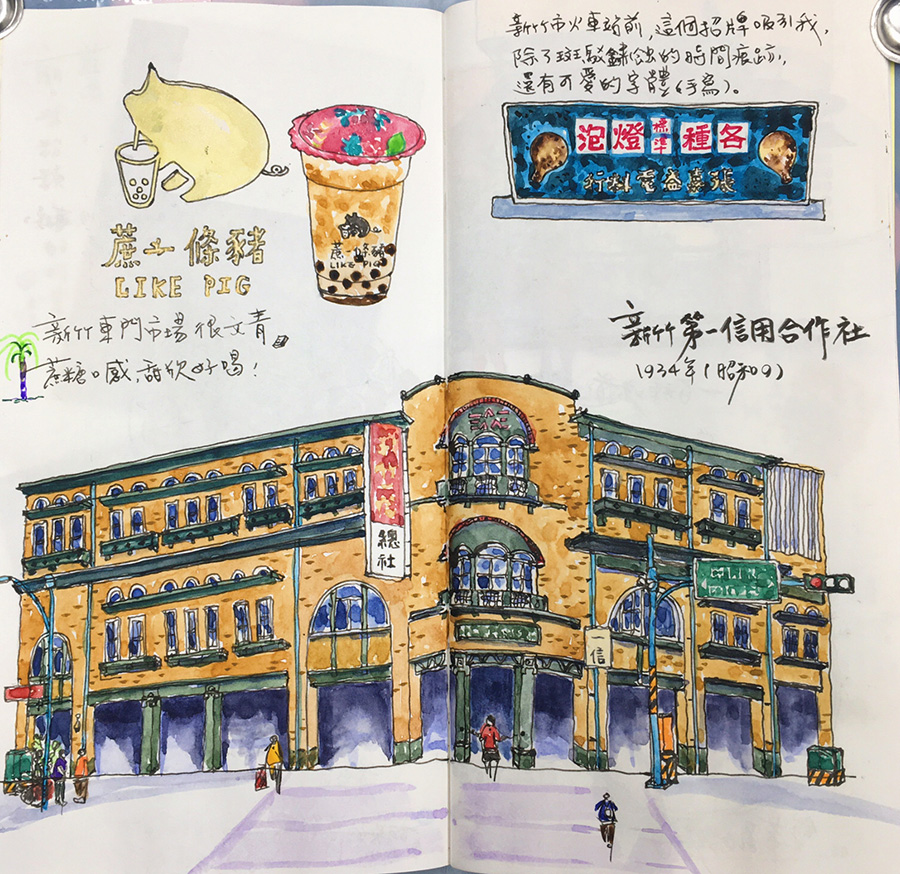 新竹市火車站前,這個招牌吸引我,
除了斑駁鏽蝕的時間痕跡,
還有可愛的字體(手寫)。
各種標準燈泡
電料行
蔗一條豬
LIKE PIG
蔗一條豬
LIKE PIG
新竹東門市場很文青
蔗糖口感,甜 好喝!
新竹第一信用合作社
1934年(昭和9)
總社
一信